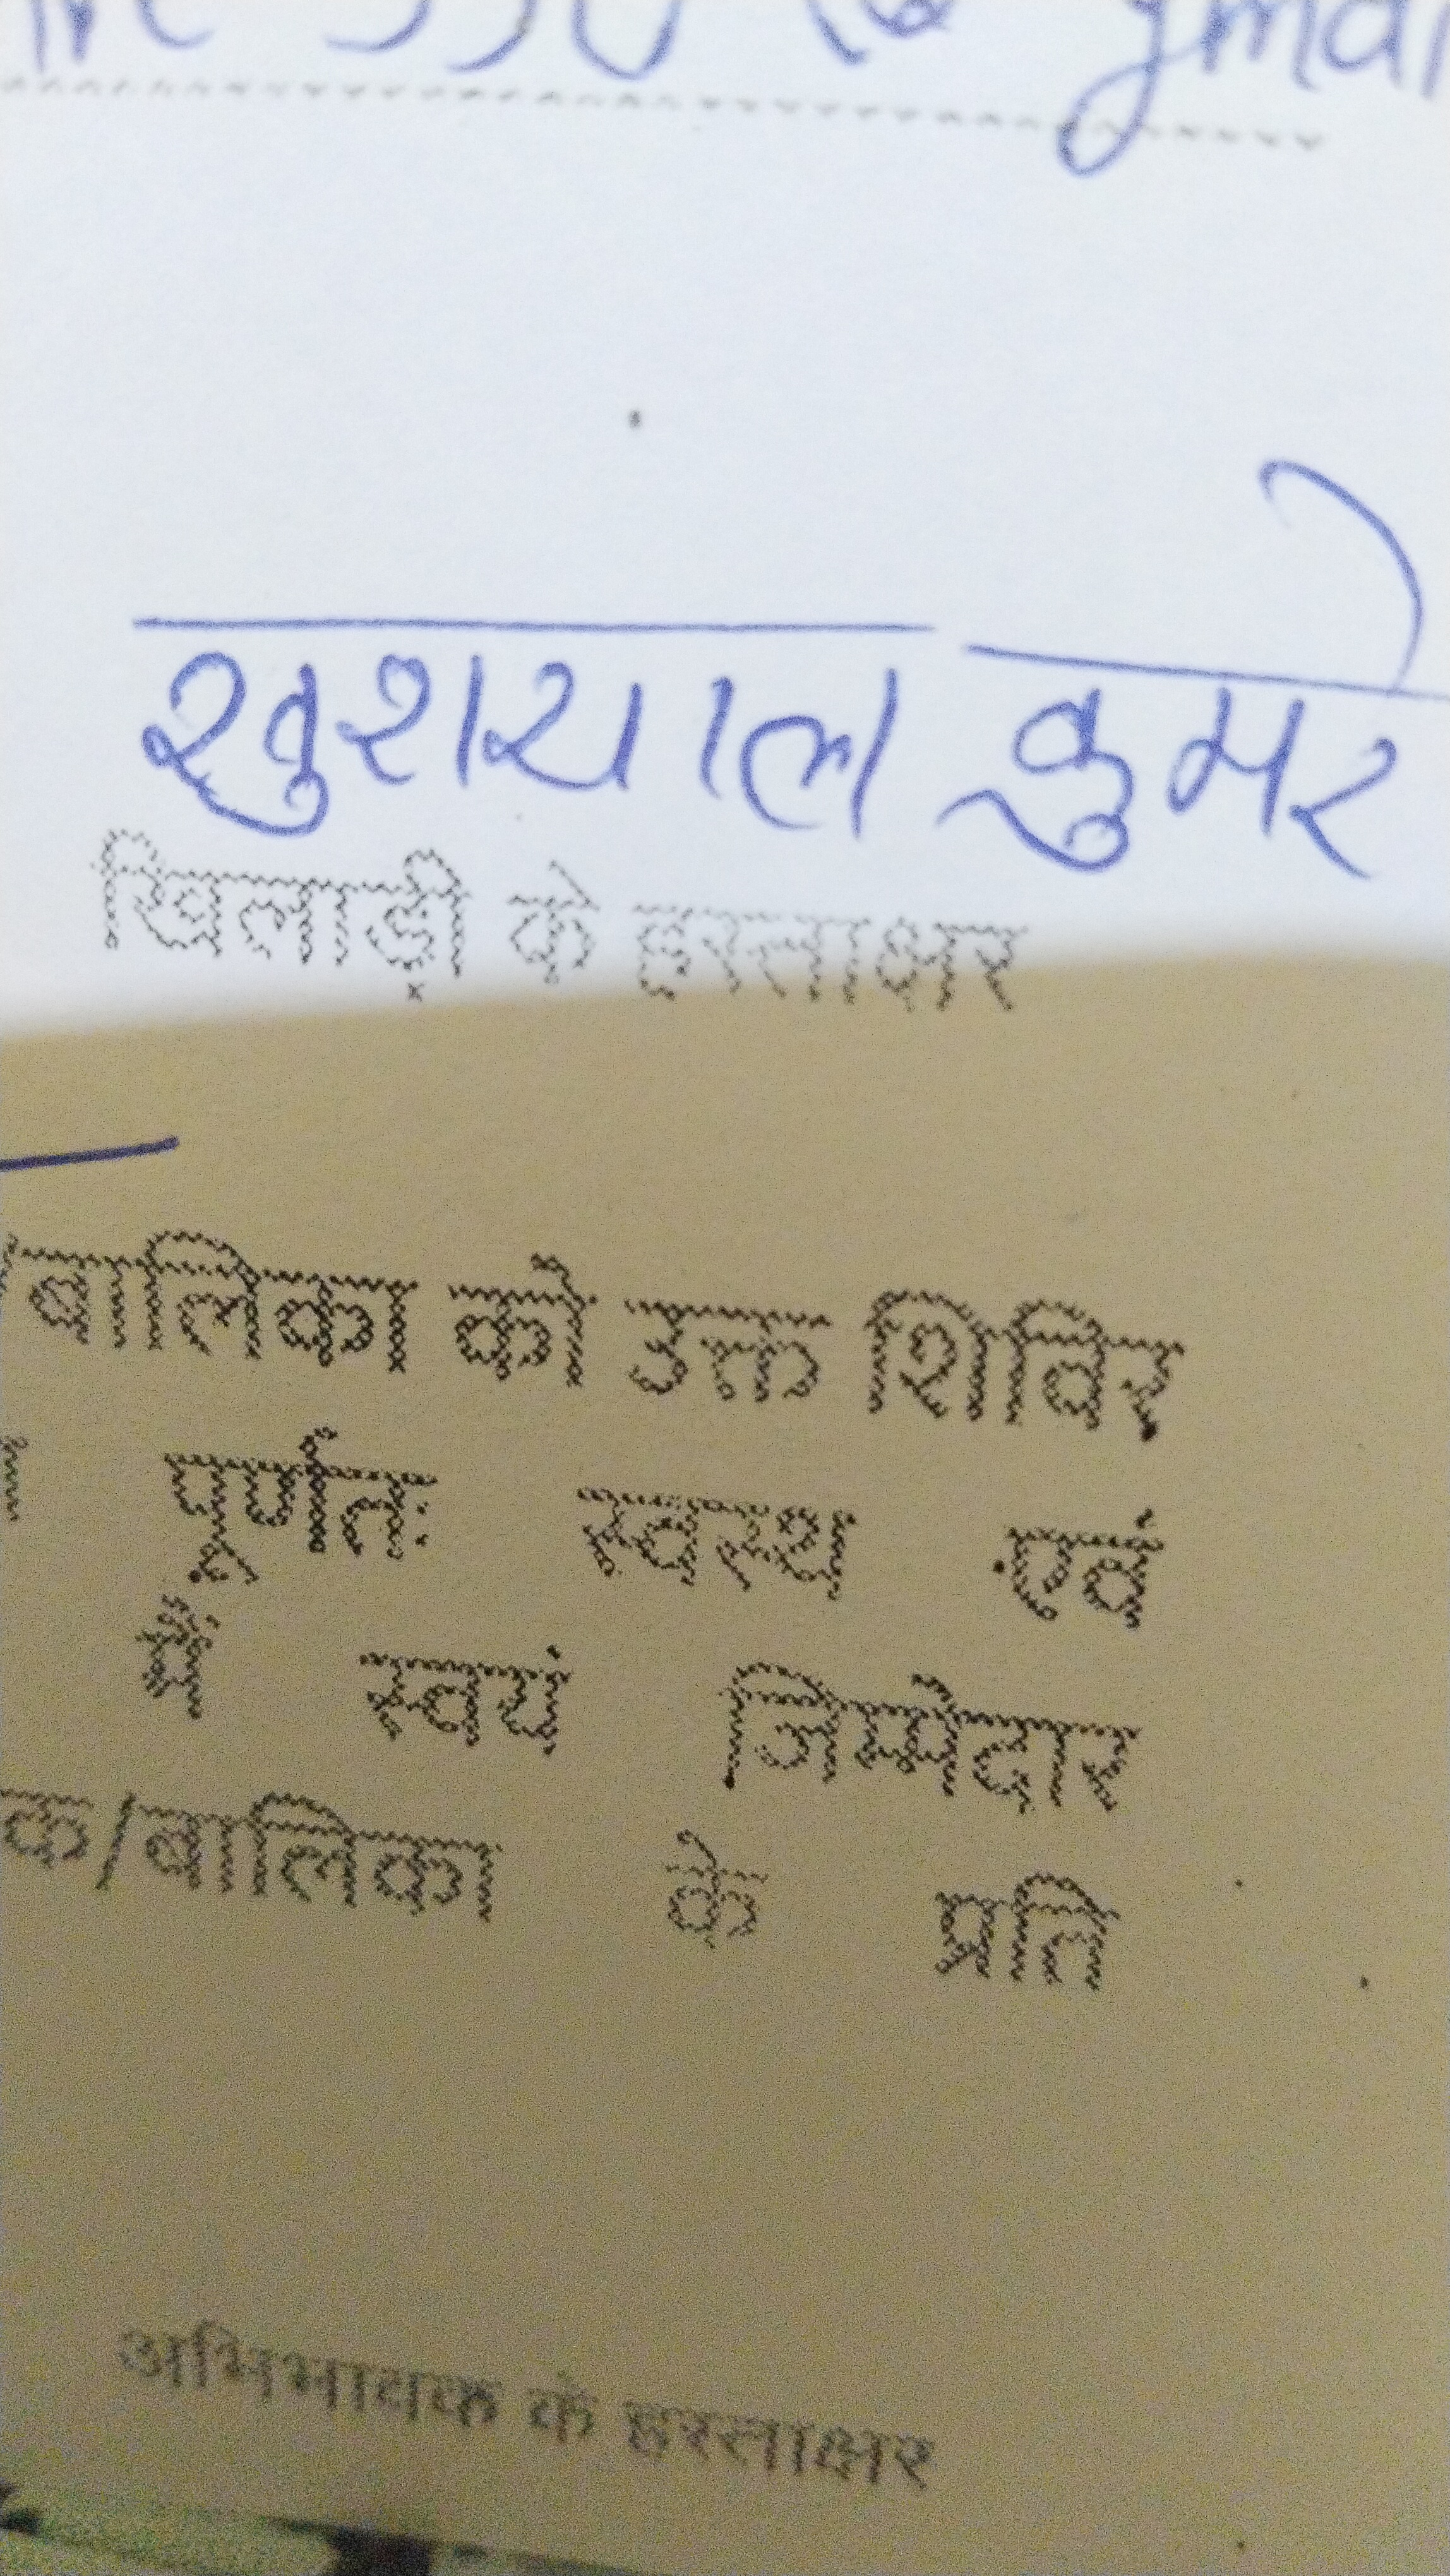 550 @ gmai
खुशयाल कुमरे
खिलाड़ी के हस्ताक्षर
/बालिका को उक्त शिविर
पूर्णतः स्वस्थ एवं
में स्वयं जिम्मेदार
क/बालिका के प्रति
अभिभावक के हस्ताक्षर